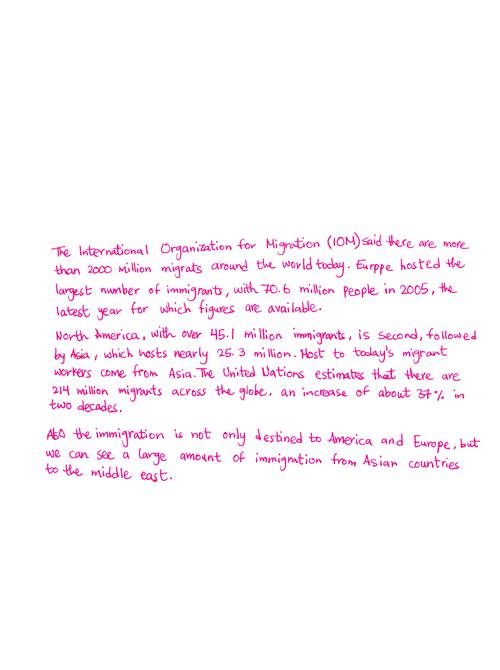 The International Organization for Migration (IOM) said there are more
than 2000 million migrats around the world today. Europpe hosted the
largest number of immigrants, with 70.6 million people in 2005, the
latest year for which figures are available.
North America, with over 45.1 million immigrants, is second, followed
by Asia, which hosts nearly 25.3 million. Most to today's migrant
workers come from Asia. The United Nations estimates that there are
214 million migrants across the globe, an increase of about 37% in
two decades.
the immigration is not only destined to America and Europe, but
we can see a large amount of immigration from Asian countries
to the middle east.